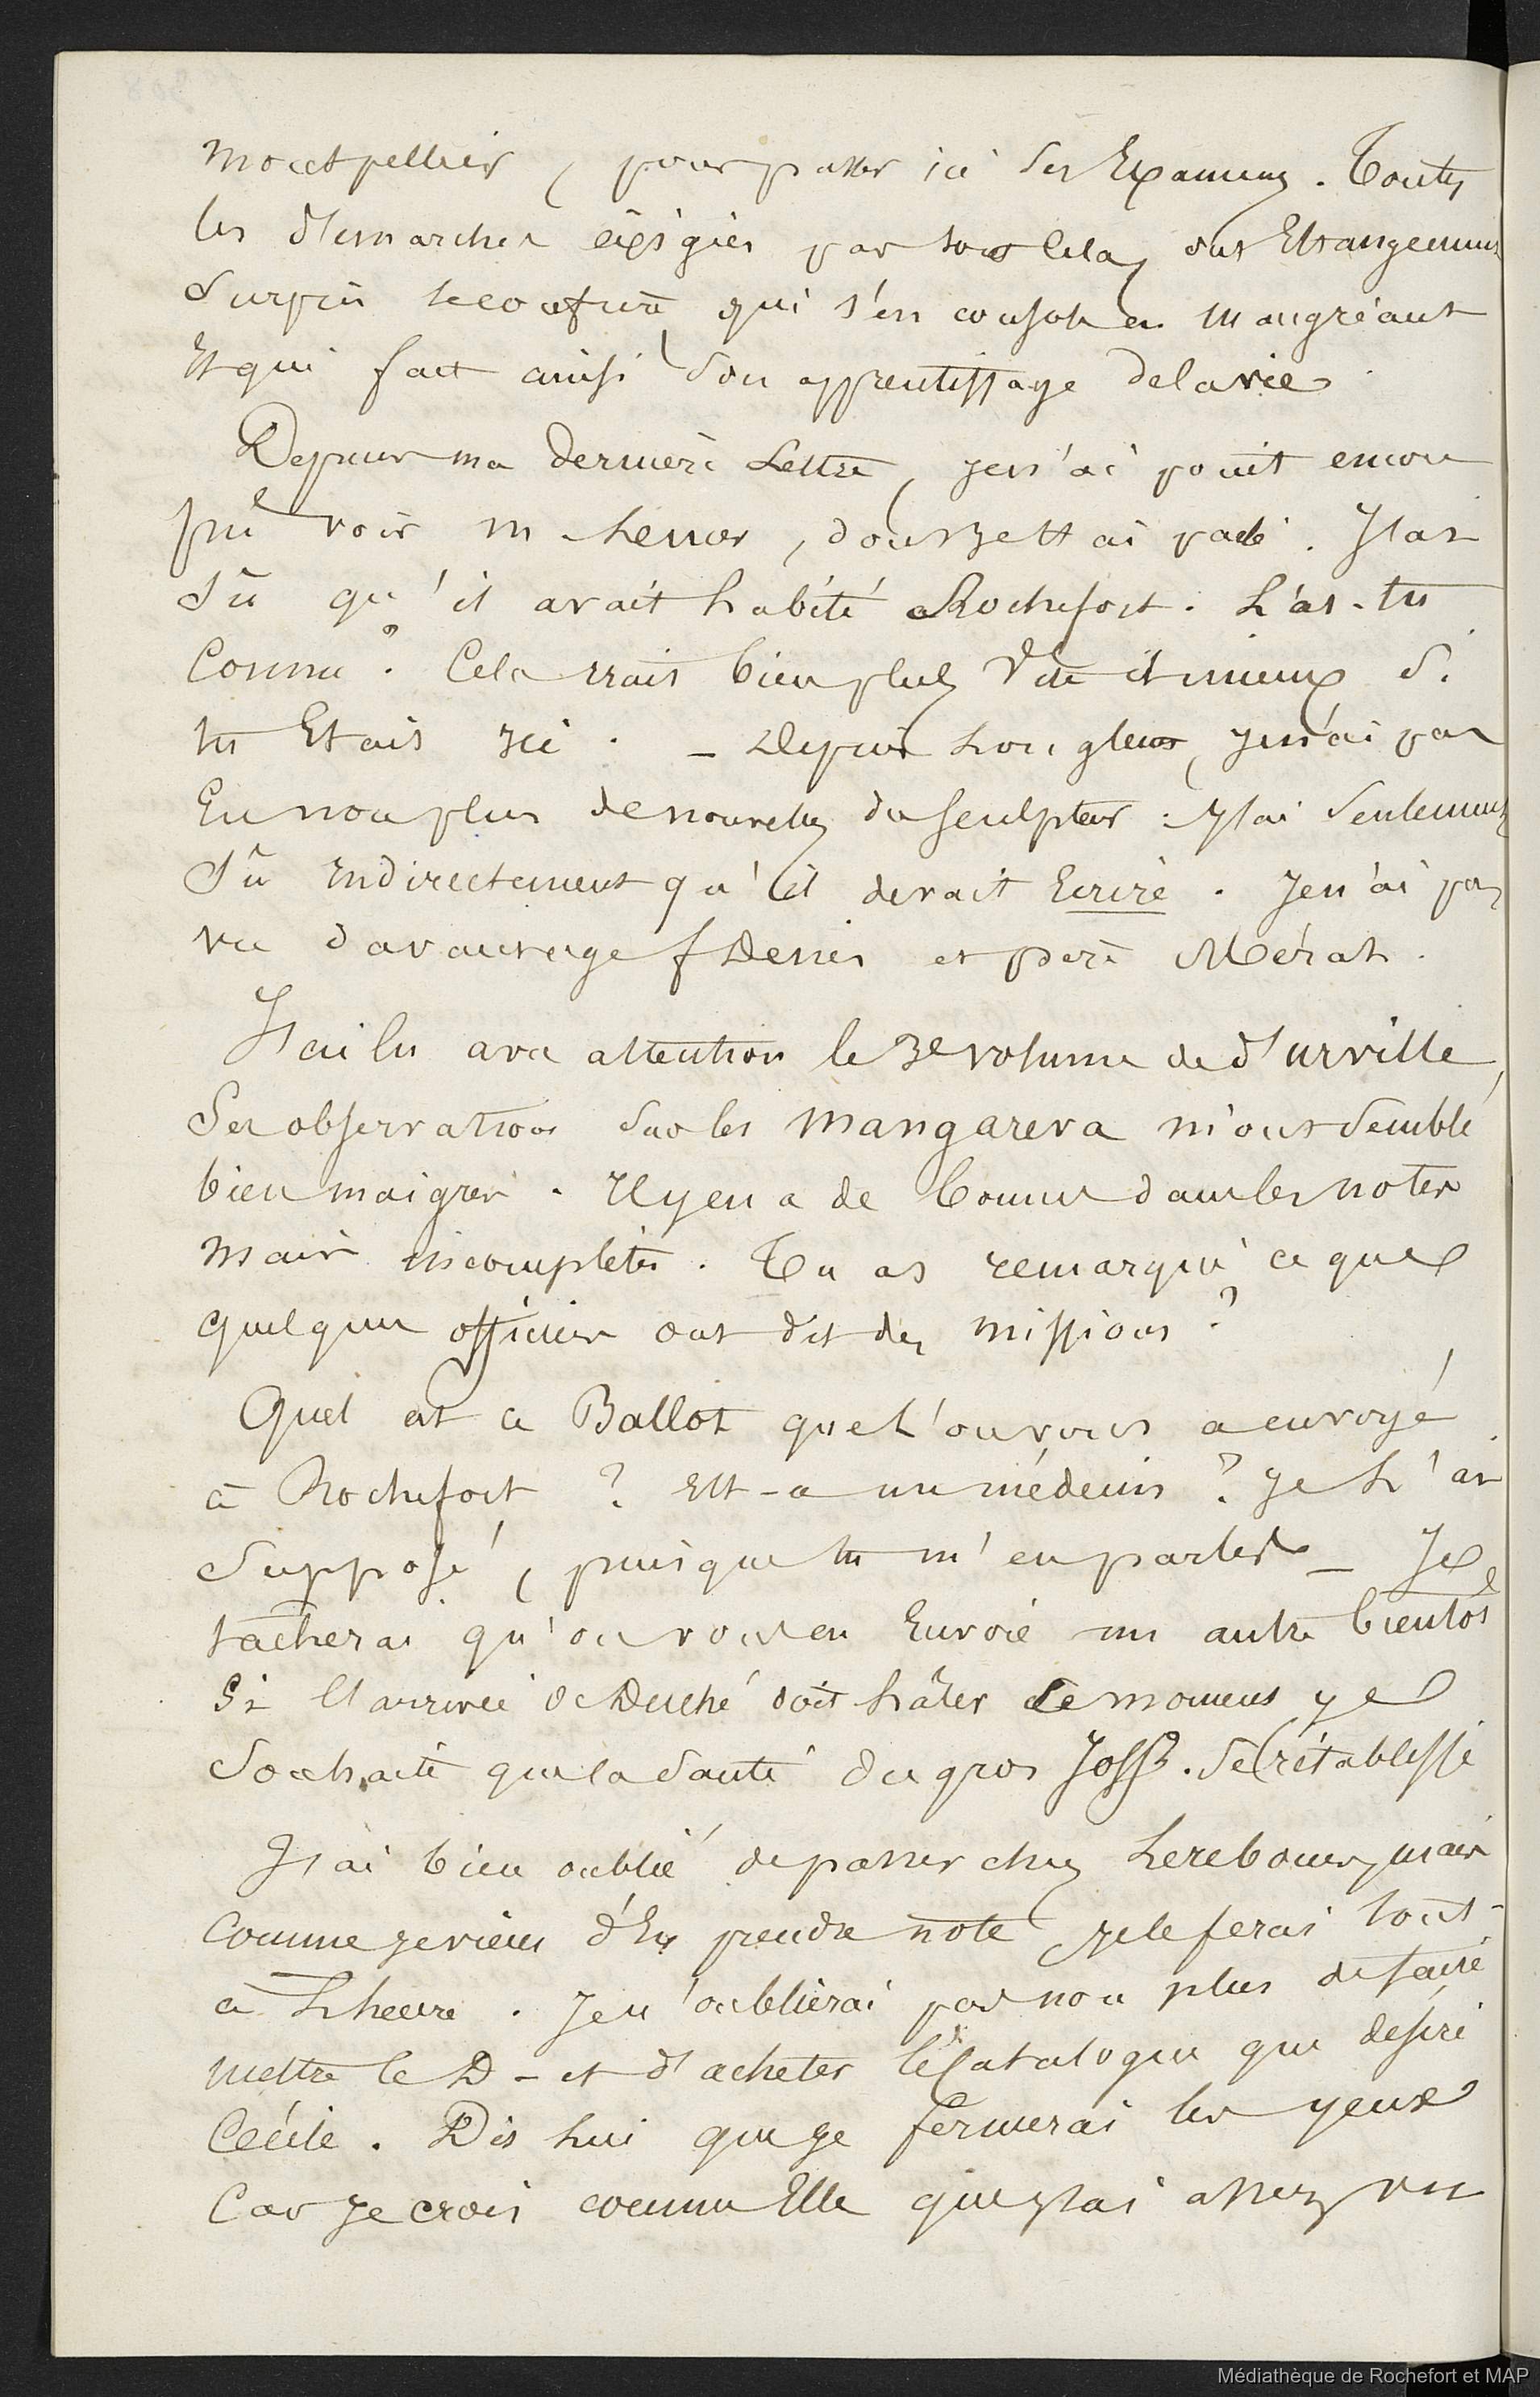 Montpellier, pour passer ici ses Examens. Toutes
les démarches éxigées par tout Cela, ont Etrangement
Surpris le confrère qui s'en console en maugréant
Et qui fait ainsi son apprentissage de la vie.
Depuis ma dernière Lettre, je n'ai point encore
pû voir M. Lesson, dont je t'ai parlé. J'ai
Sû qu'il avait habité Rochefort. L'as-tu
Connu? Cela irait bien plus vite et mieux Si
tu Etais ici. – Depuis Longtems, je n'ai pas
Eu non plus de nouvelles du Sculpteur. J'ai Seulement
Sû indirectement qu'il devait Ecrire. Je n'ai pas
vu davantage f Denis et père Mérat.
J'ai lu avec attention le 3e volume de d'urville,
Ses observations Sur les mangareva m'ont Semblé
bien maigres. Il y en a de bonnes dans les notes
mais incomplètes. Tu as remarqué ce que
quelques officiers ont dit des missions?
Quel est ce Ballot que l'on vous a envoyé
à Rochefort? Est-ce un médecin? Je L'ai
Supposé, puisque tu m'en parles – Je
tâcherai qu'on vous en Envoie un autre bientôt
Si l'arrivée de Duché doit hâter ce moment je
Souhaite que la Santé du gros Joss. Se rétablisse
J'ai bien oublié de passer chez Lerebours, mais
Comme je viens d'En prendre note je le ferai tout-
à L'heure. Je n'oublierai pas non plus de faire
mettre le D – et d'acheter le Catalogue que désire
Cécile. Dis lui que je fermerai les yeux
Car je crois comme Elle que j'ai assez vu
Médiathèque de Rochefort et MAP